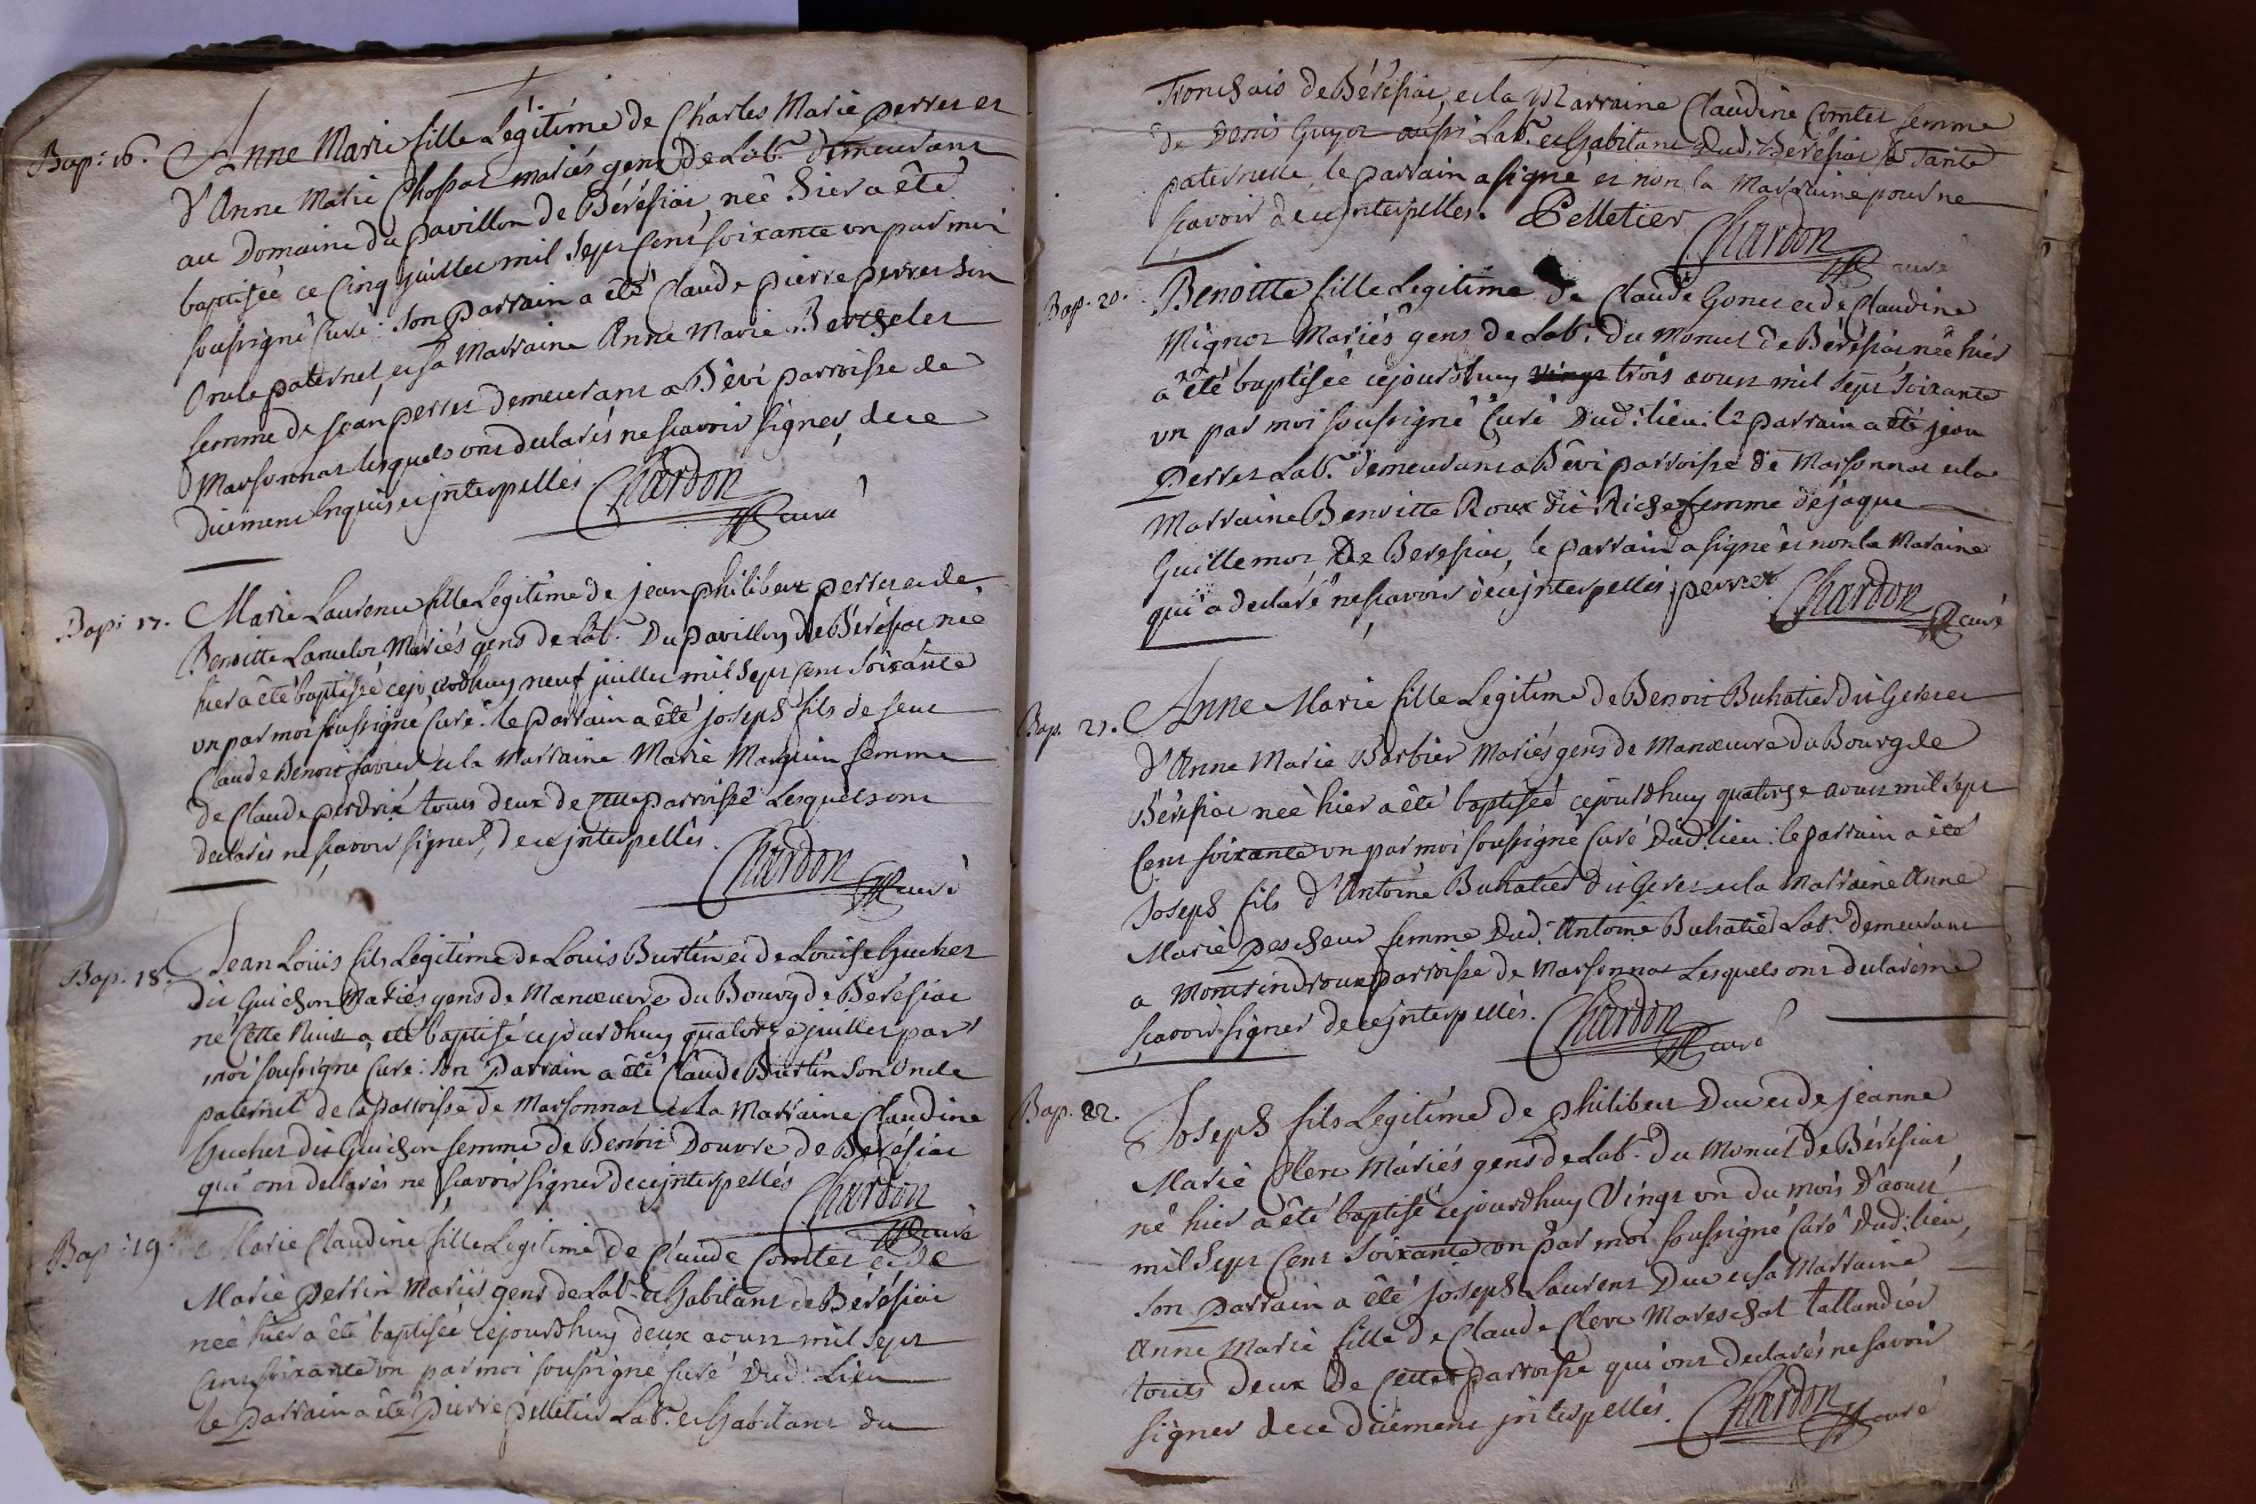 Bap: 16. Anne Marie fille Legitime de Charles Marie perret et
d'Anne Marie Chossat mariés gens de Lab.r demeurant
au Domaine du pavillon de Béréssiat, neé hier a êté
baptisée ce Cinq juillet mil Sept Cent soixante un par moi
soussigné Curé: Son parrain a êté Claude pierre perret son
Oncle paternel, et sa Marraine Anne Marie Berthelet
femme de jean perret demeurant a Bévi parroisse de
Marsonnat lesquels ont declarés ne scavoir signer, de ce
düement Enquis et jnterpellés Chardon
curé
Bap: 17. Marie Laurence fille Legitime de jean philibert perret et de
Benoitte Mariés gens de Lab.r Du pavillon de Béréssiat neé
hier a êté baptisée cejourdhuy neuf juillet mil Sept Cent Soixante
un par moi soussigné Curé: le parrain a êté joseph fils de feu
Claude Benoit favier et la Marraine Marie Marguin femme
de Claude perdrix tous deux de Cette parroisse Lesquels ont
declarés ne scavoir signer, de ce jnterpellés.
Chardon curé
Bap: 18. Jean Louis fils Legitime de Louis Burtin et de Louise Guchet
dit Guichon Mariés gens de Manœuvre du Bourg de Béréssiat
né Cette Nuit a eté baptisé cejourdhuy quatorze juillet par
moi soussigné Curé: Son Parrain a êté Claude Burtin Son Oncle
paternel de la parroisse de Marsonnat et la Marraine Claudine
Guchet dit Guichon femme de Benoit Douvre de Béréssiat
qui ont dellarés ne scavoir signer de ce jnterpellés Chardon
curé
Bap: 19. Marie Claudine fille Legitime de Claude Comtet et de
Marie perrin Mariés gens de Lab.r et habitans de Béréssiat
neé hier a êté baptisée cejourdhuy deux aoust mil Sept
Cent soixante un par moi soussigné Curé Dud: Lieu
le parrain a êté pierre pelletier Lab.r et habitant du
Tronchais de Béréssiat, et la Marraine Claudine Comtet femme
de Denis Guyot aussi Lab.r et habitant Dud: Béréssiat Sa Tante
paternelle, le parrain a signé et non la Marraine pour ne
scavoir de ce jnterpellés. Pelletier
Chardon curé
Bap: 20. Benoitte fille Legitime de Claude Gonet et de Claudine
Mignot Mariés gens de Lab.r du Moncet de Béréssiat neé hier
a êté baptisée cejourdhuy vingt trois aoust mil Sept Soixante
un par moi soussigné Curé Dud: lieu: le parrain a êté jean
Perret Lab.r demeurant a Bévi parroisse de Marsonnat et la
Marraine Benoitte Roux dit Riche femme de jaque
Guillemot De Beressiat, le parrain a signé et non la Maraine
qui a declaré ne scavoir de ce jnterpellés perret Chardon
curé
Bap: 21. Anne Marie fille Legitime de Benoit Buhatier dit Geret et
d'Anne Marie Barbier Mariés gens de Manœuvre du Bourg de
Béréssiat neé hier a êté baptisée cejourdhuy quatorze aoust mil Sept
Cent soixante un par moi soussigné Curé Dud: lieu: le parrain a êté
Joseph fils d'Antoine Buhatier dit Geret et la Marraine Anne
Marie pescheur femme Dud: Antoine Buhatier Lab.r demeurant
a parroisse de Marsonnat Lesquels ont declaré ne
scavoir signer de ce jnterpellés. Chardon
curé
Bap: 22. Joseph fils Legitime de philibert Duc et de jeanne
Marie Clerc Mariés gens de Lab.r du Moncet de Béréssiat
né hier a êté baptisé cejourdhuy Vingt un du mois D'aoust
mil Sept Cent Soixante un par moi soussigné Curé Dud: lieu,
Son Parrain a êté joseph Laurent Duc et sa Marraine
Anne Marie fille de Claude Clerc Mareschal tallandier
touts deux de Cette parroisse qui ont declarés ne savoir
signer de ce düement jnterpellés. Chardon
curé